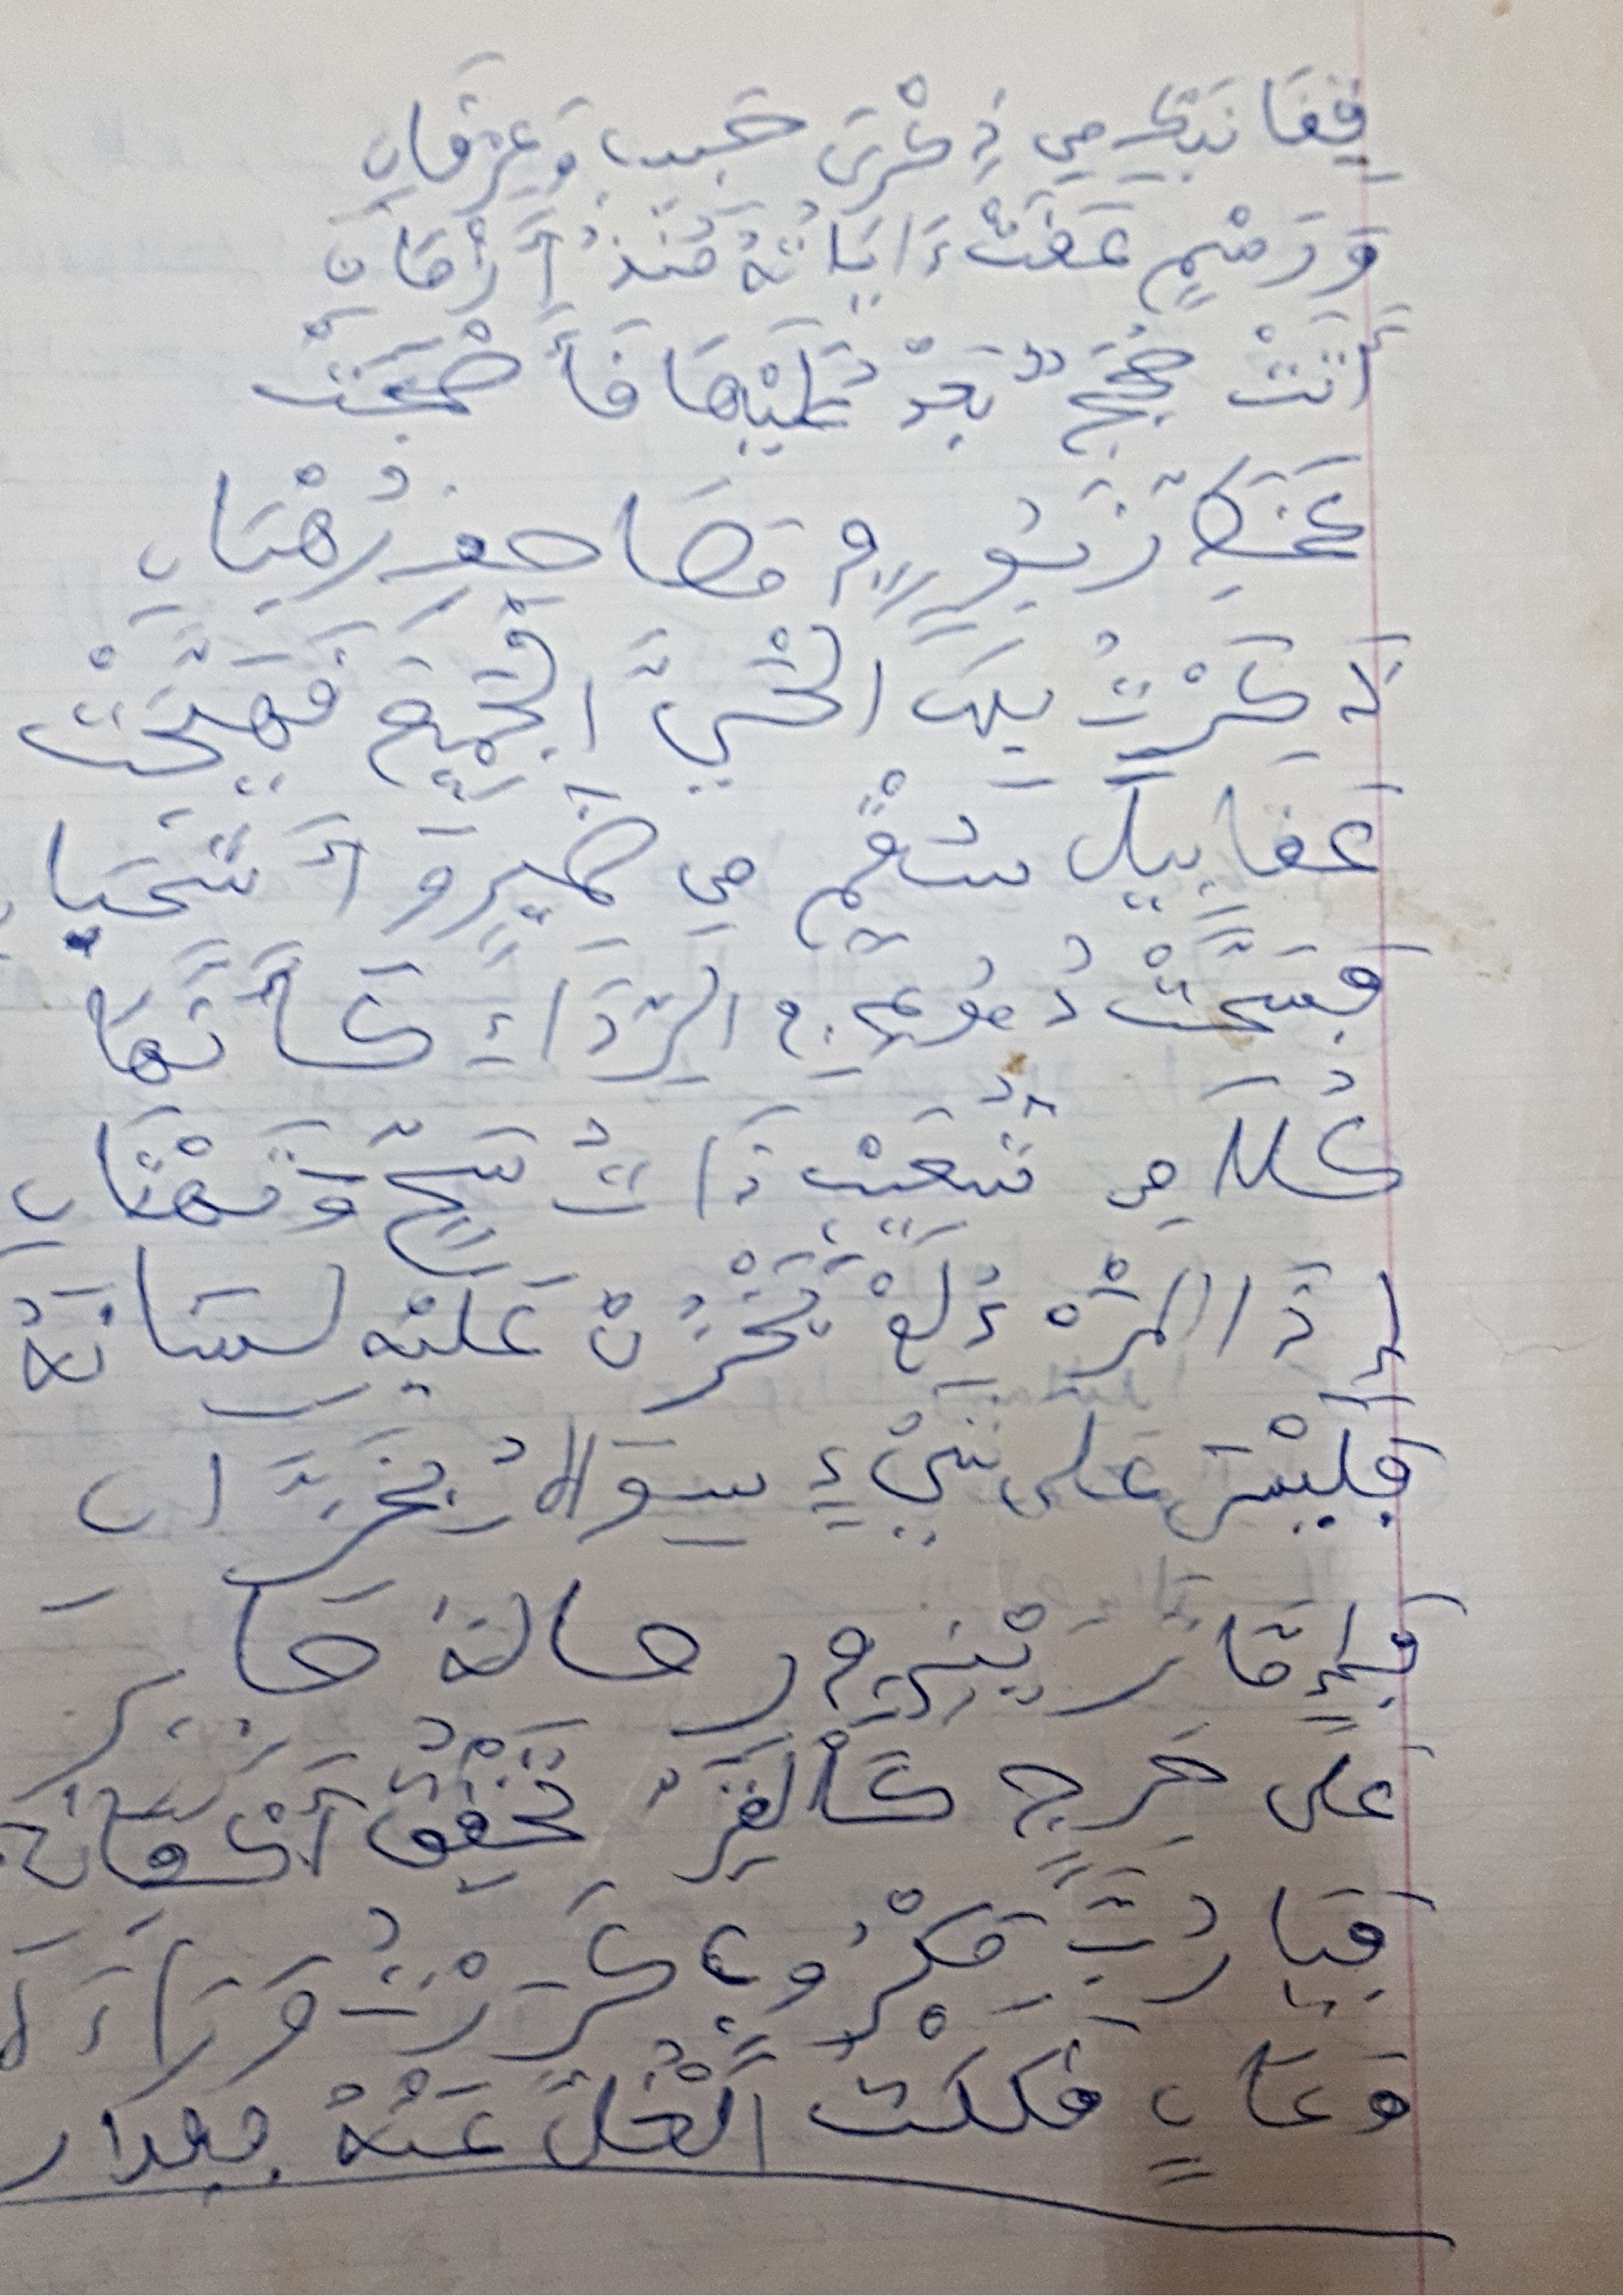 قِفَا نَبْكِ مِن ذِكْرَى حَبِيبٍ وَعِرْفَانِ
وَرَسْمٍ عَفَتْ ءَايَاتُهُ مُنذُ أَزْمَانِ
أَتَتْ حِجَجٌ بَعْدِ عَلَيْهَا فَأَصْبَحَتْ
كَخَطِّ زَبُورٍ فِي مَصَاحِفِ رُهْبَانِ
ذَكَرْتُ بِهَا الْحَيَّ الْجَمِيعَ فَهَيَّجَتْ
عَقَابِيلَ سُقْمٍ مِن ضَمِيرٍ وَأَشْجَانِ
فَسَحَّتْ دُمُوعِي فِي الرِّدَاءِ كَأَنَّهَا
كُلَا مِن شَعِيبٍ ذَاتُ سَحٍّ وَتَهْتَانِ
إِذَا الْمَرْءُ لَمْ يَخْزُنْ عَلَيْهِ لِسَانَهُ
فَلَيْسَ عَلَى شَيْءٍ سِوَاهُ بِخَزَّانِ
فَإِمَّا تَرَيْنِي فِي رِحَالَةِ جَابِرٍ
عَلَى حَرَجٍ كَالْقَرِّ تَخْفِقُ أَكْفَانِي
فَيَا رُبَّ مَكْرُوبٍ كَرَرْتُ وَرَاءَهُ
وَعَانٍ فَكَكْتُ الْغُلَّ عَنْهُ فَفَدَانِ